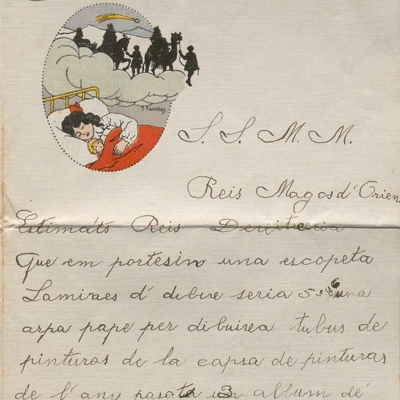 S. S. M. M.
Reis Magos d'Orien
Estimáts Reis
Que em portesin una escopeta
Lamines d' dibuxe seria 5 o 6 una
arpa pape per dibuixa tubus de
pinturas de la capsa de pinturas
de l'any pasat un album de